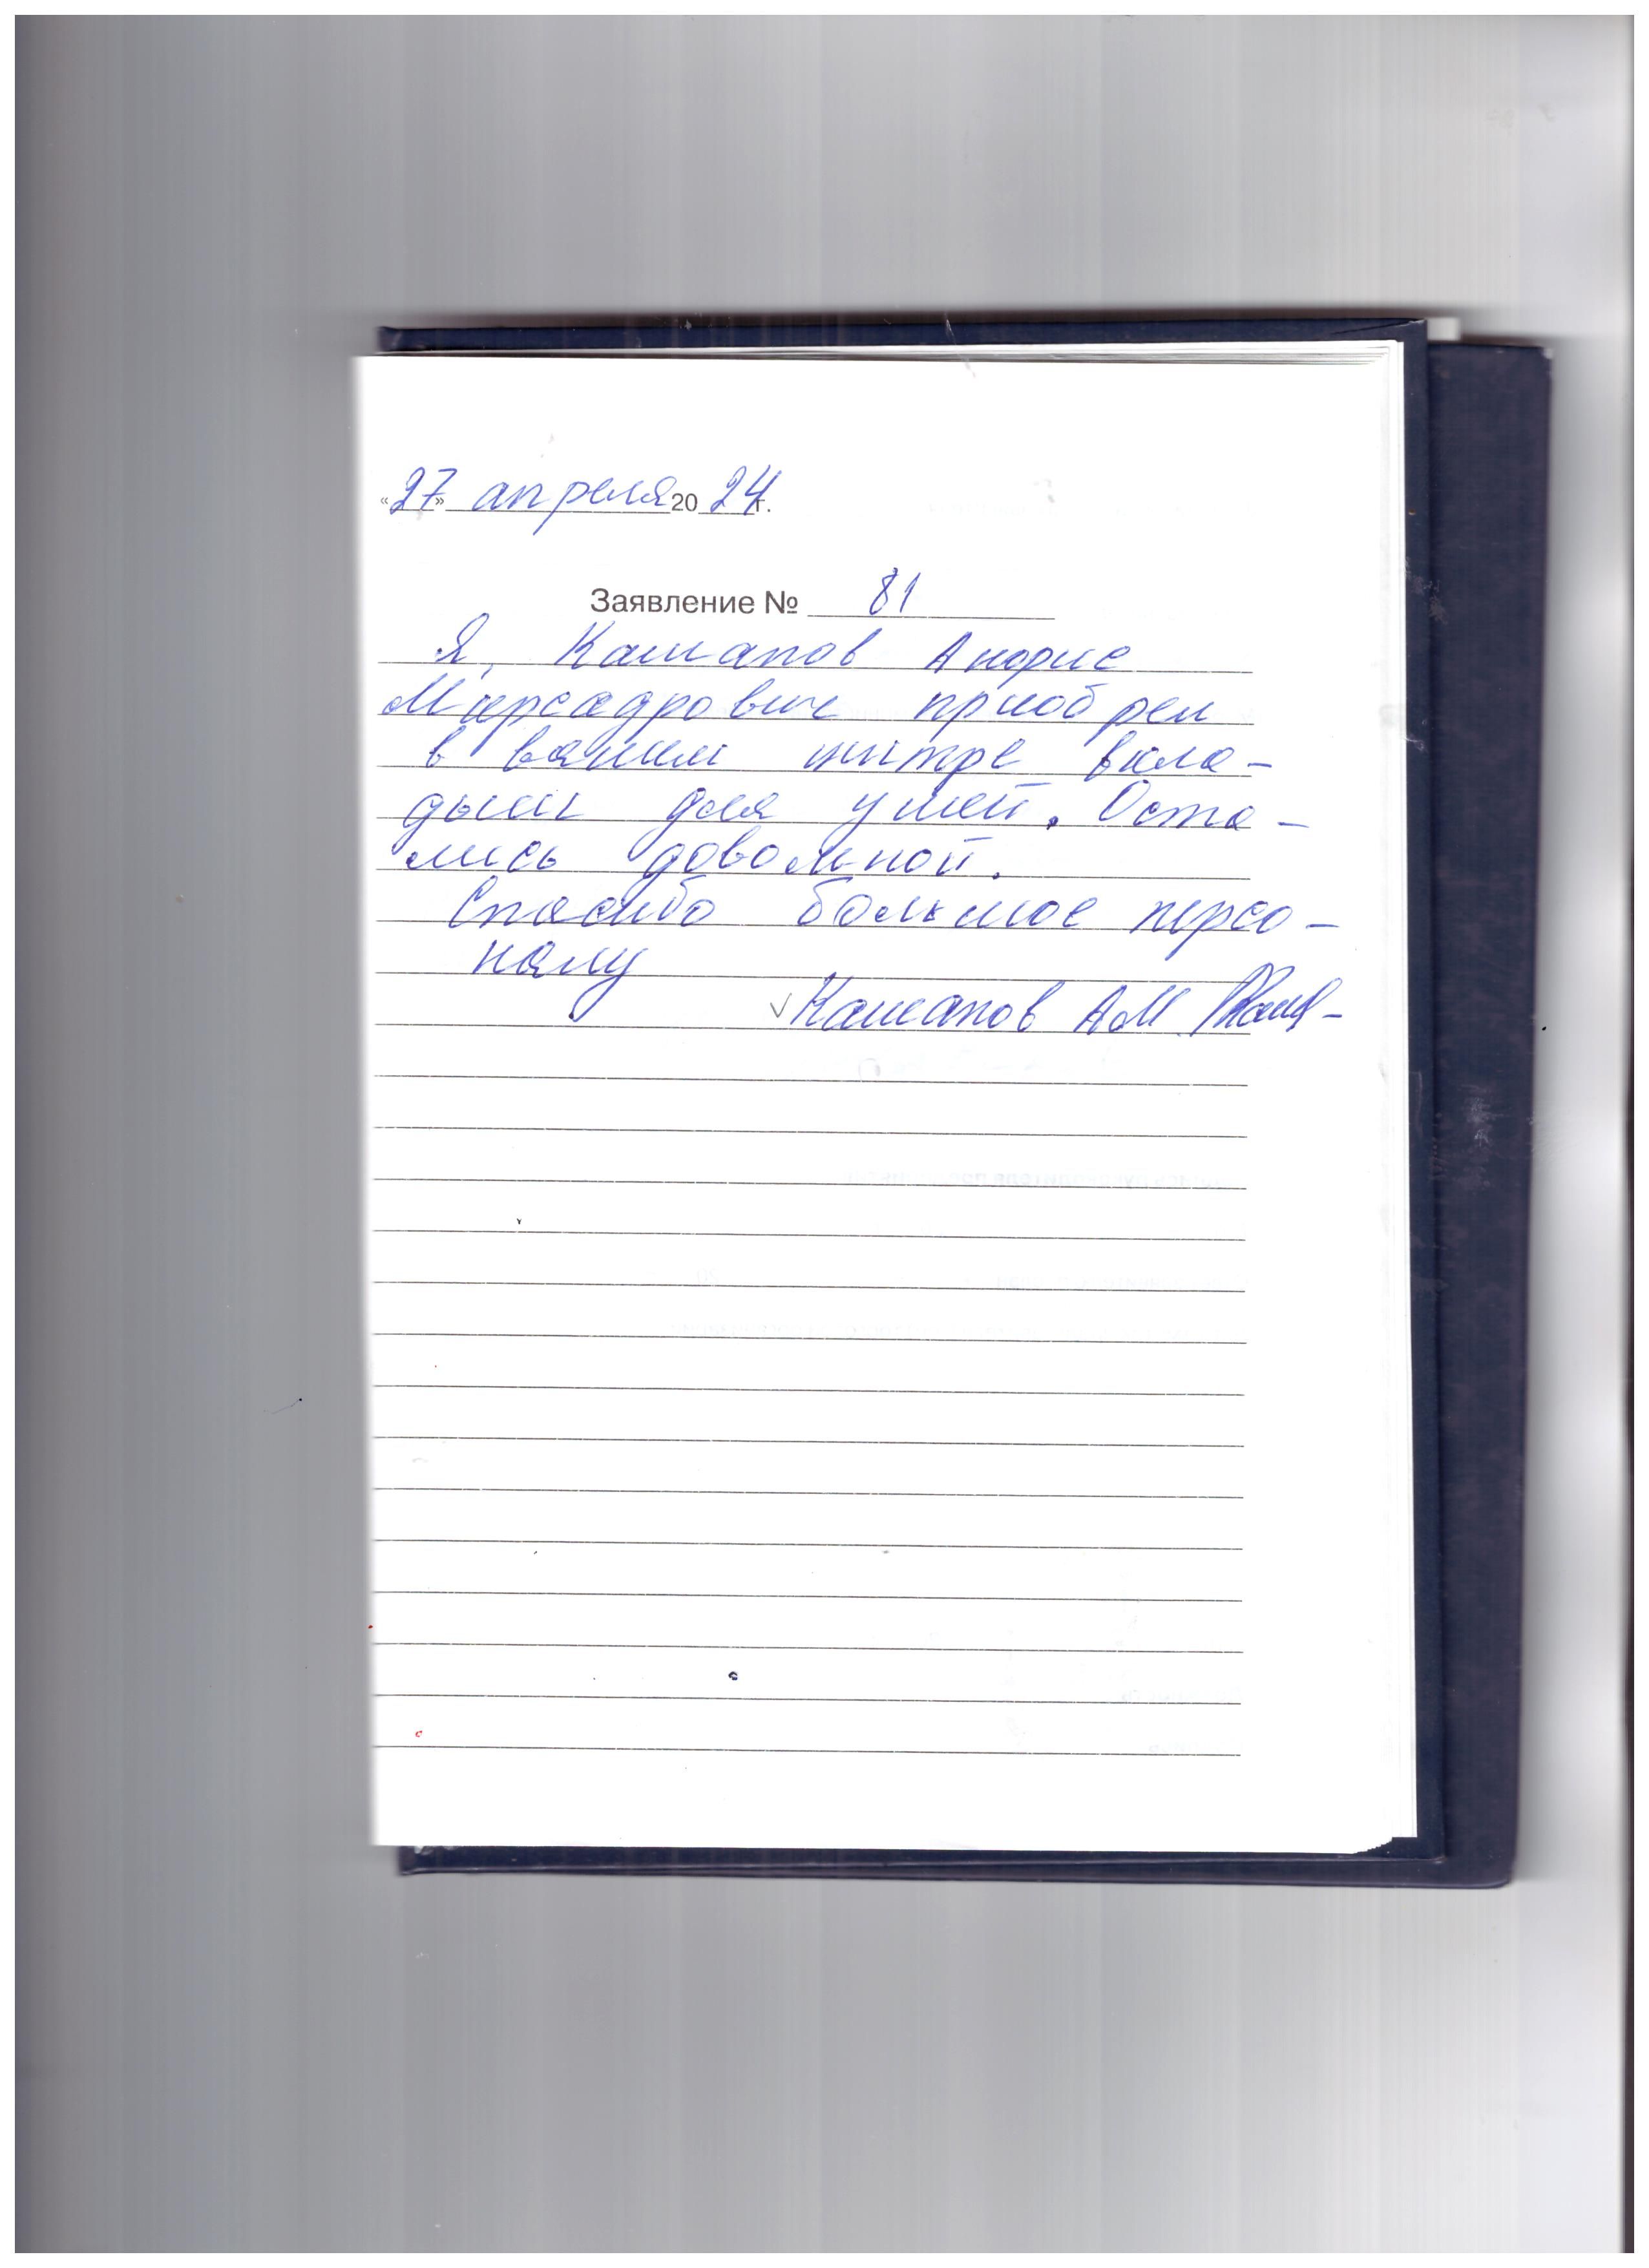 «27» апреля 2024г.
Заявление № 81
Я, Кашапов
приобрел
в вашем центре вкла-
дыши для ушей. Оста-
лись довольной.
Спасибо большое персо-
налу
Кашапов АМ